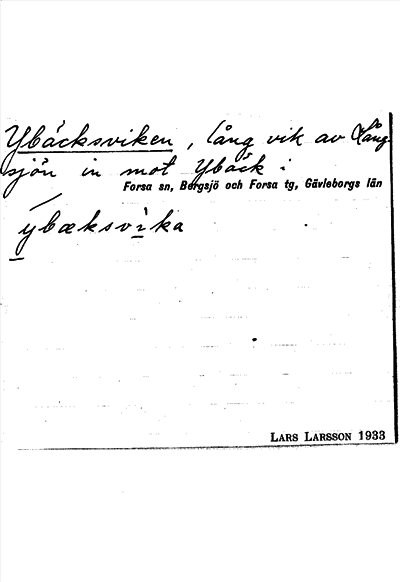 Ybäcksviken, lång vik av Lång-
sjön in mot Ybäck.
Forsa sn, Bergsjö och Forsa tg, Gävleborgs län
ybæksvìka
LARS LARSSON 1933